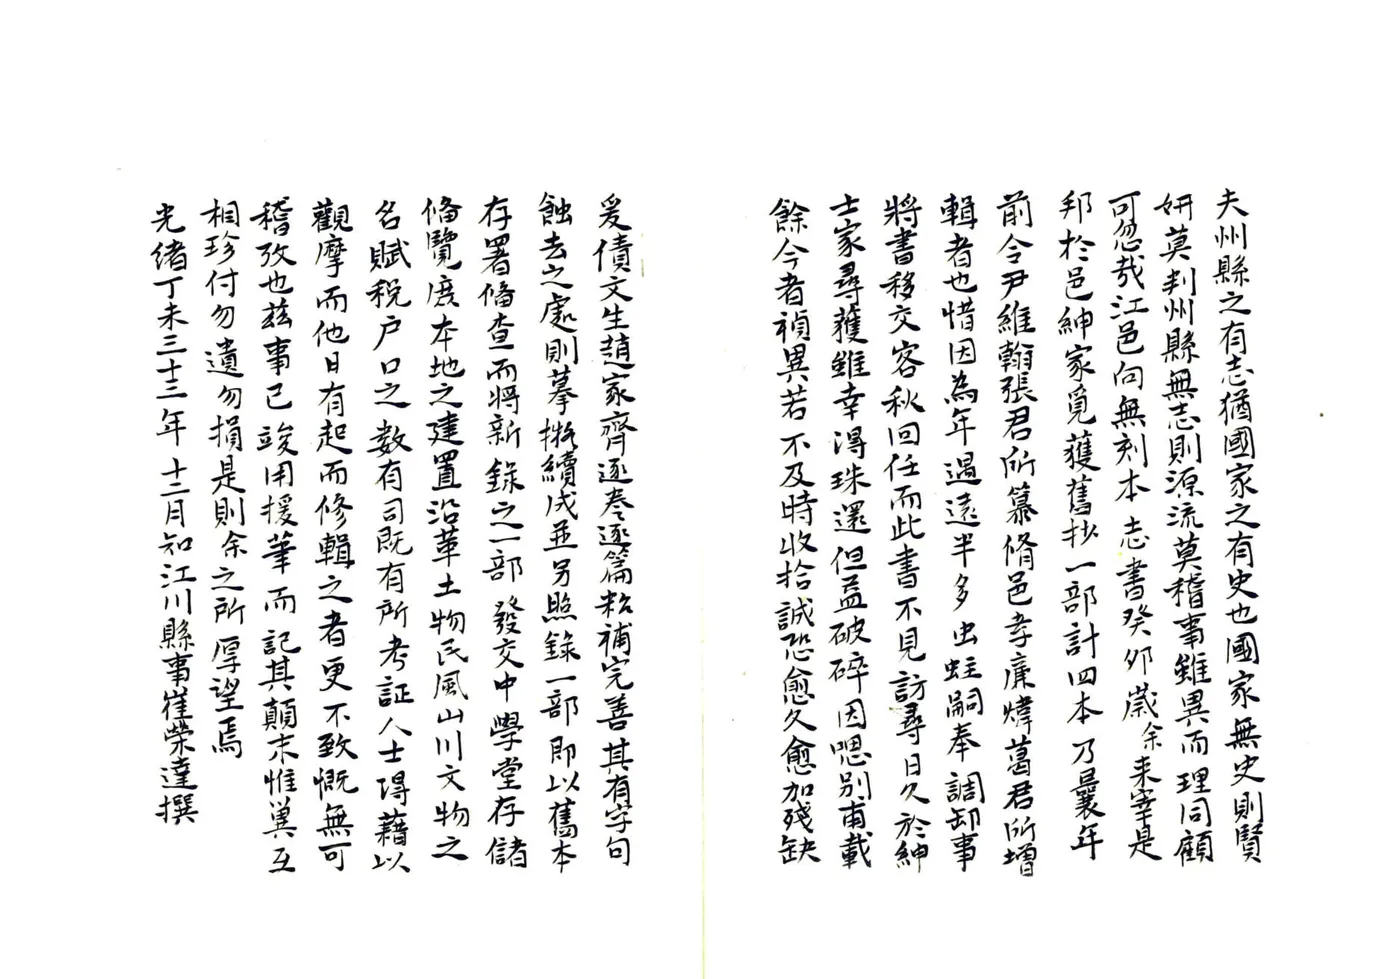 夫州縣之有志猶國家之有史也國家無史則賢
妍莫判州縣無志則源流莫稽事雖異而理同顧
可忽哉江邑向無刻本志書癸卯歲余来宰是
邦於邑紳家覓獲舊抄一部計四本乃曩年
前令尹維翰張君所纂脩邑孝廉煒葛君所增
輯者也惜因為年過遠半多虫蛀嗣奉調卸事
將書移交客秋回任而此書不見訪尋日久於紳
士家尋獲雖幸淂珠還但益破碎因思別甫載
餘今者禎異若不及時收拾誠恐愈久愈加殘缺
爰債文生趙家齊逐卷逐篇粘補完善其有字句
蝕去之處則摹擬續成並另照錄一部即以舊本
存署俻查而將新錄之一部發交中學堂存儲
俻覽庶本地之建置沿革土物民風山川文物之
名賦税户口之數有司既有所考証人士得藉以
觀摩而他日有起而修輯之者更不致慨無可
稽攷也兹事已竣用援筆而記其顛末惟兾互
相珍付勿遺勿損是則余之所厚望焉
光緒丁未三十三年十二月知江川縣事崔榮達撰